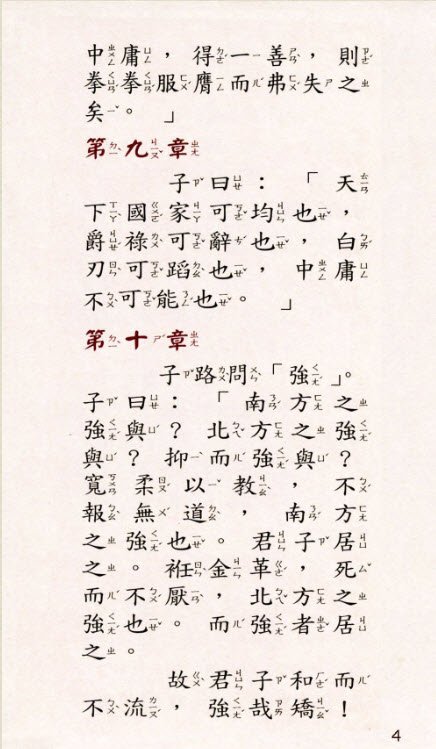 中庸，得一善，則
拳拳服膺而弗失之
矣。」
第九章
子曰：「天
下國家可均也，
爵祿可辭也，白
刃可蹈也，中庸
不可能也。」
第十章
子路問「強」。
子曰：「南方之
強與？北方之強
與？抑而強與？
寬柔以教，不
報無道，南方
之強也。君子居
之。衽金革，死
而不厭，北方之
強也。而強者居
之。
故君子和而
不流，強哉矯！
4